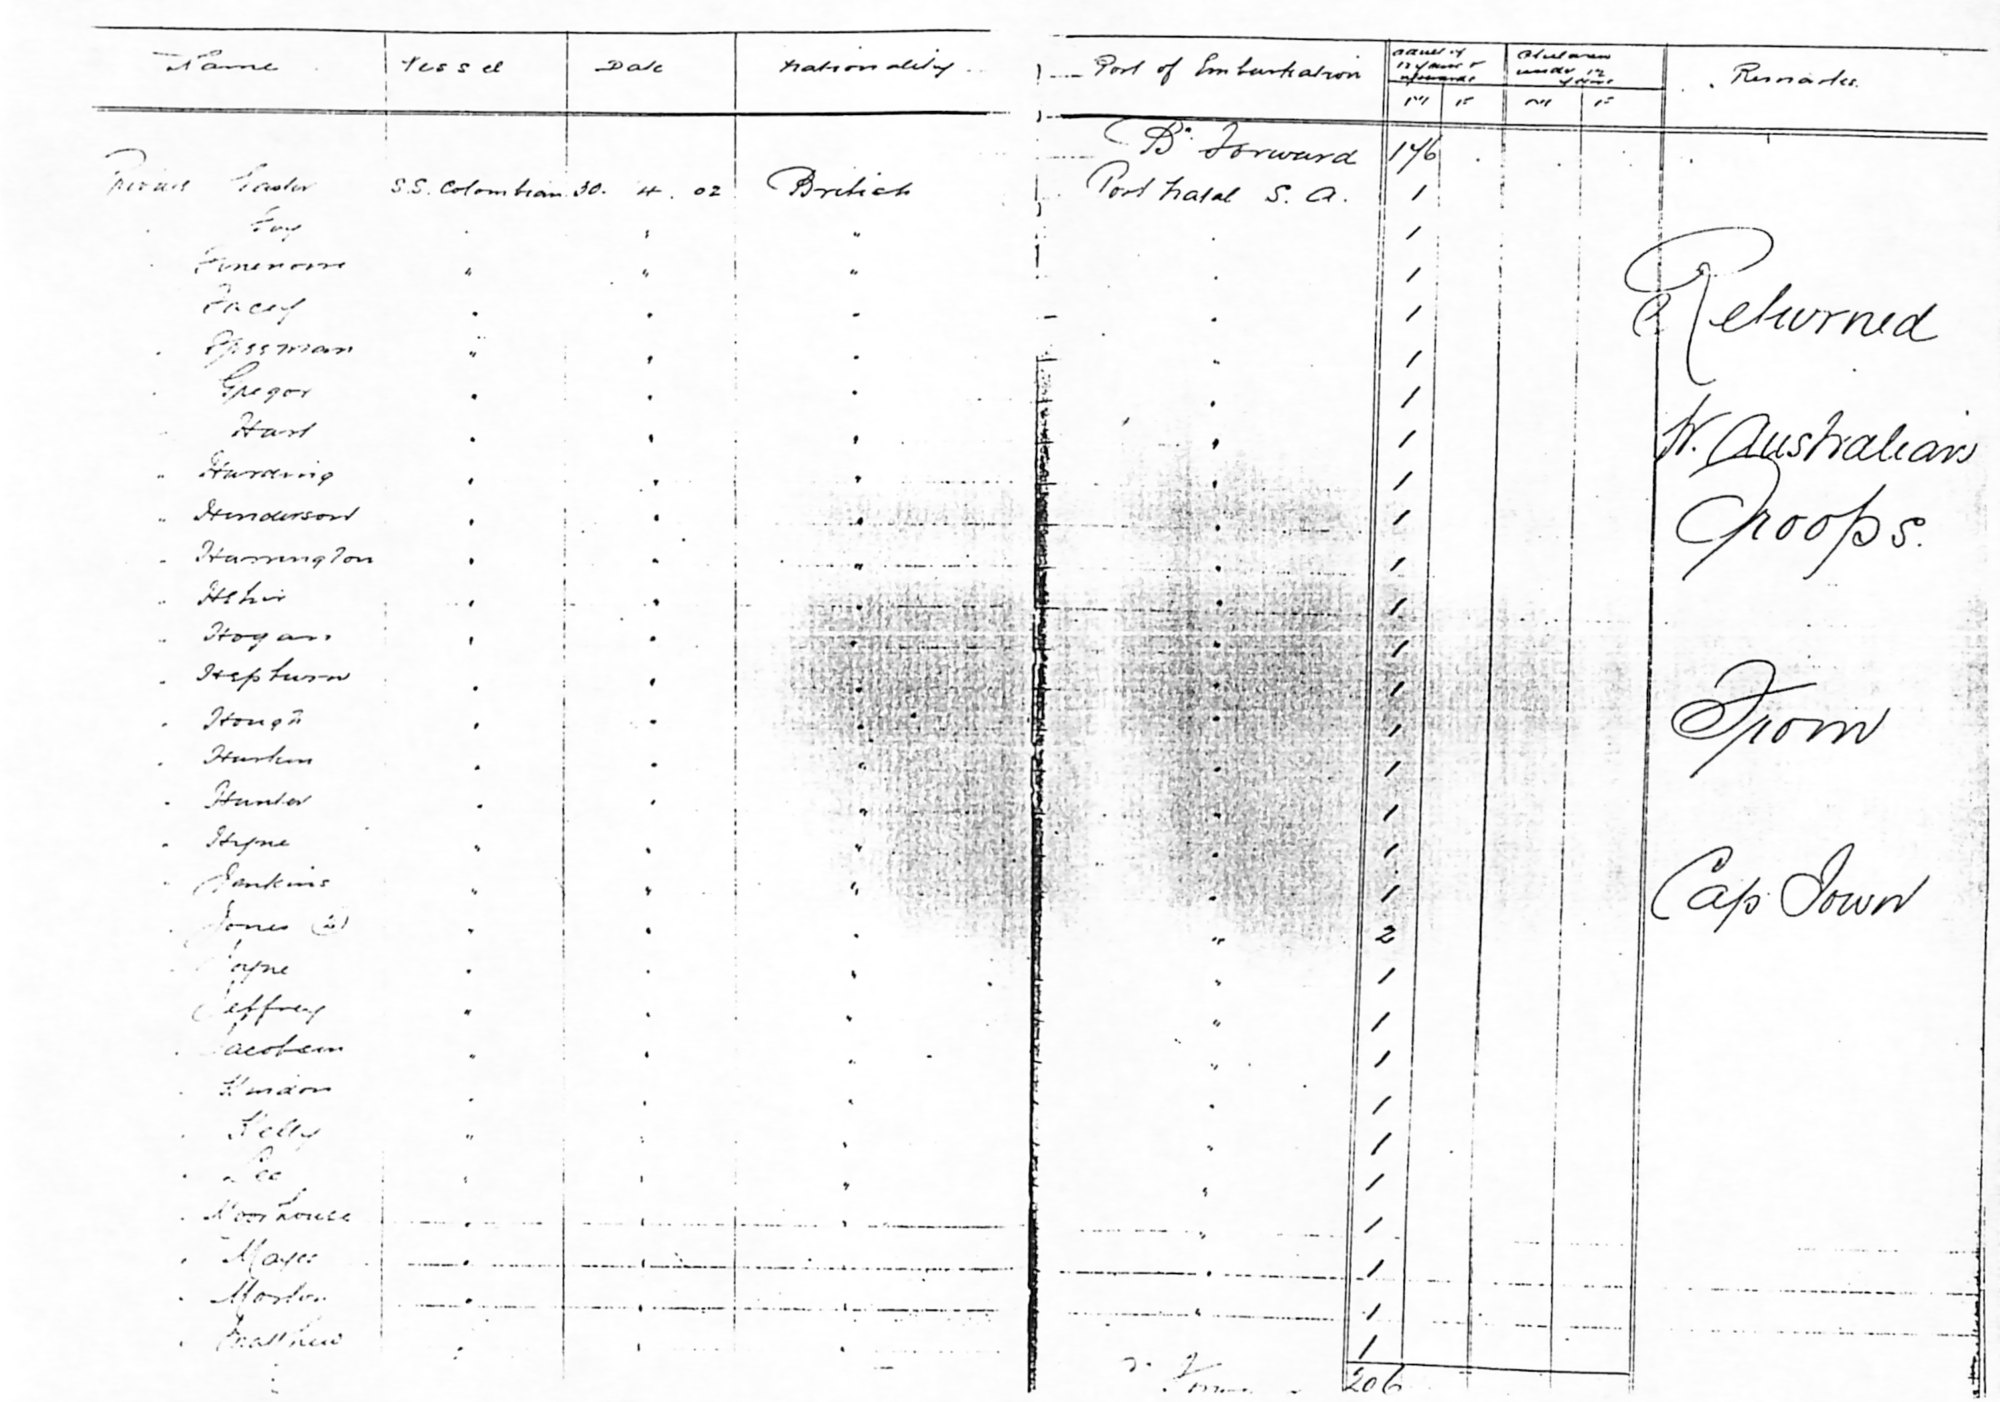 Name Vessel Date Nationality Port of Embarkation Adult of 12 years & upwards Children under 12 years Remarks
M F M F
Bt Forward 176
Private Easter S.S. Colombian 30. 4. 02 British Port Natal S. A. 1
" Foy " " " " 1
" " " " " 1
Facey " " " " 1
" " " " " 1
" Gregor " " " " 1
" Hart " " " " 1
" Harding " " " " 1
" Henderson " " " " 1
" Harrington " " " " 1
" Hehir " " " " 1
" Hogan " " " " 1
" Hepburn " " " " 1
" Hough " " " " 1
" " " " " 1
" Hunter " " " " 1
" Hyne " " " " 1
" Jenkins " " " " 1
" Jones (2) " " " " 2
" Joyne " " " " 1
Jeffrey " " " " 1
" Jacobson " " " " 1
" " " " " 1
" Kelly " " " " 1
" Lee " " " " 1
" Moorhouse " " " " 1
" Mayes " " " " 1
" Morton " " " " 1
" Matthew " " " " 1
206
Returned
W. Australian
Troops.
From
Cape Town